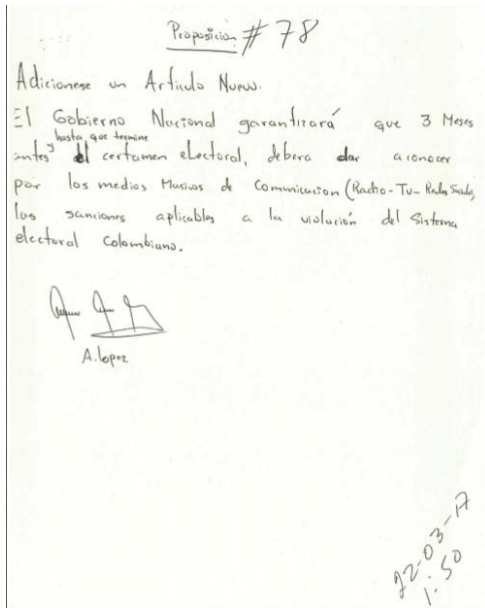 Proposicion # 78
Adicionese un Articulo Nuevo.
El Gobierno Nacional garantizará que 3 Meses
antes y hasta que termine el certamen electoral, debera dar a conocer
por los medios Masivos de Comunicacion (Radio-Tv-Redes Sociales,
las sanciones aplicables a la violación del Sistema
electoral Colombiano.
A. Lopez
22-03-17
1:50